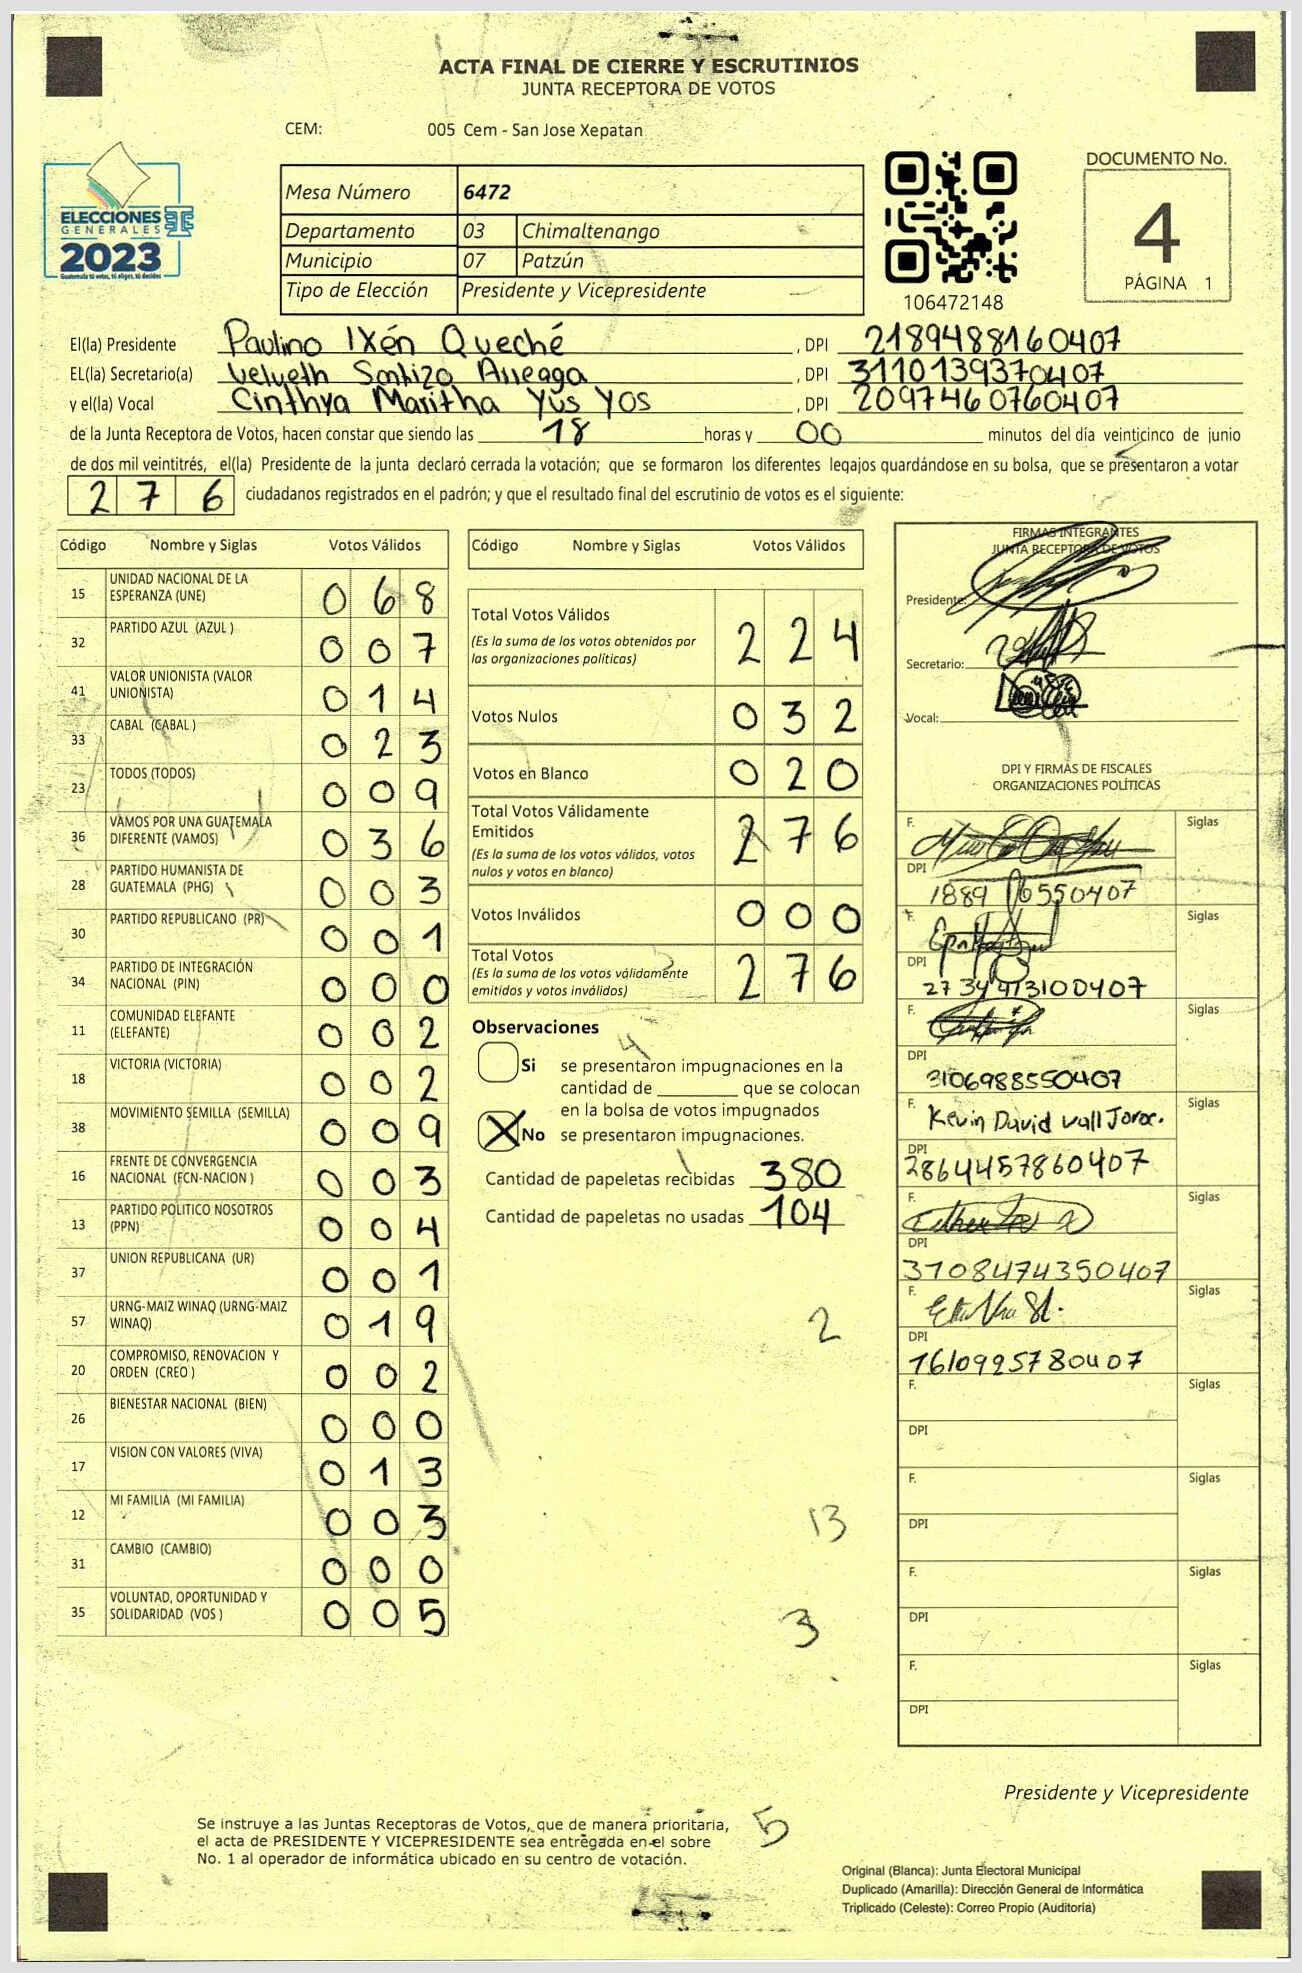 ACTA FINAL DE CIERRE Y ESCRUTINIOS
JUNTA RECEPTORA DE VOTOS
CEM: 005 Cem - San Jose Xepatan
ELECCIONES
GENERALES
2023
Guatemala tú votas, tú eliges, tú decides
Mesa Número 6472
Departamento 03 Chimaltenango
Municipio 07 Patzún
Tipo de Elección Presidente y Vicepresidente
106472148
DOCUMENTO No.
4
PÁGINA 1
El(la) Presidente Paulino Ixén Queché , DPI 2189488160407
EL(la) Secretario(a) Velveth Santizo Arreaga , DPI 3110139370407
y el(la) Vocal Cinthya Maritha Yus Yos , DPI 2097460760407
de la Junta Receptora de Votos, hacen constar que siendo las 18 horas y 00 minutos del día veinticinco de junio
de dos mil veintitrés, el(la) Presidente de la junta declaró cerrada la votación; que se formaron los diferentes legajos guardándose en su bolsa, que se presentaron a votar
276 ciudadanos registrados en el padrón; y que el resultado final del escrutinio de votos es el siguiente:
Código Nombre y Siglas Votos Válidos
15 UNIDAD NACIONAL DE LA ESPERANZA (UNE) 068
32 PARTIDO AZUL (AZUL ) 007
41 VALOR UNIONISTA (VALOR UNIONISTA) 014
33 CABAL (CABAL ) 023
23 TODOS (TODOS) 009
36 VAMOS POR UNA GUATEMALA DIFERENTE (VAMOS) 036
28 PARTIDO HUMANISTA DE GUATEMALA (PHG) 003
30 PARTIDO REPUBLICANO (PR) 001
34 PARTIDO DE INTEGRACIÓN NACIONAL (PIN) 000
11 COMUNIDAD ELEFANTE (ELEFANTE) 002
18 VICTORIA (VICTORIA) 002
38 MOVIMIENTO SEMILLA (SEMILLA) 009
16 FRENTE DE CONVERGENCIA NACIONAL (FCN-NACION ) 003
13 PARTIDO POLITICO NOSOTROS (PPN) 004
37 UNION REPUBLICANA (UR) 001
57 URNG-MAIZ WINAQ (URNG-MAIZ WINAQ) 019
20 COMPROMISO, RENOVACION Y ORDEN (CREO ) 002
26 BIENESTAR NACIONAL (BIEN) 000
17 VISION CON VALORES (VIVA) 013
12 MI FAMILIA (MI FAMILIA) 003
31 CAMBIO (CAMBIO) 000
35 VOLUNTAD, OPORTUNIDAD Y SOLIDARIDAD (VOS ) 005
Código Nombre y Siglas Votos Válidos
Total Votos Válidos 224
(Es la suma de los votos obtenidos por
las organizaciones políticas)
Votos Nulos 032
Votos en Blanco 020
Total Votos Válidamente
Emitidos 276
(Es la suma de los votos válidos, votos
nulos y votos en blanco)
Votos Inválidos 000
Total Votos 276
(Es la suma de los votos válidamente
emitidos y votos inválidos)
Observaciones
4
Si se presentaron impugnaciones en la
cantidad de ________ que se colocan
en la bolsa de votos impugnados
X No se presentaron impugnaciones.
Cantidad de papeletas recibidas 380
Cantidad de papeletas no usadas 104
2
13
3
5
FIRMAS INTEGRANTES
JUNTA RECEPTORA DE VOTOS
Presidente:
Secretario:
Vocal:
DPI Y FIRMAS DE FISCALES
ORGANIZACIONES POLÍTICAS
F. Siglas
DPI
F. Siglas
DPI
F. Siglas
DPI 3106988550407
F. Kevin David Siglas
DPI 2864457860407
F. Siglas
DPI 3108474350407
F. Siglas
DPI 1610925780407
F. Siglas
DPI
F. Siglas
DPI
F. Siglas
DPI
F. Siglas
DPI
Presidente y Vicepresidente
Se instruye a las Juntas Receptoras de Votos, que de manera prioritaria,
el acta de PRESIDENTE Y VICEPRESIDENTE sea entregada en el sobre
No. 1 al operador de informática ubicado en su centro de votación.
Original (Blanca): Junta Electoral Municipal
Duplicado (Amarilla): Dirección General de Informática
Triplicado (Celeste): Correo Propio (Auditoría)